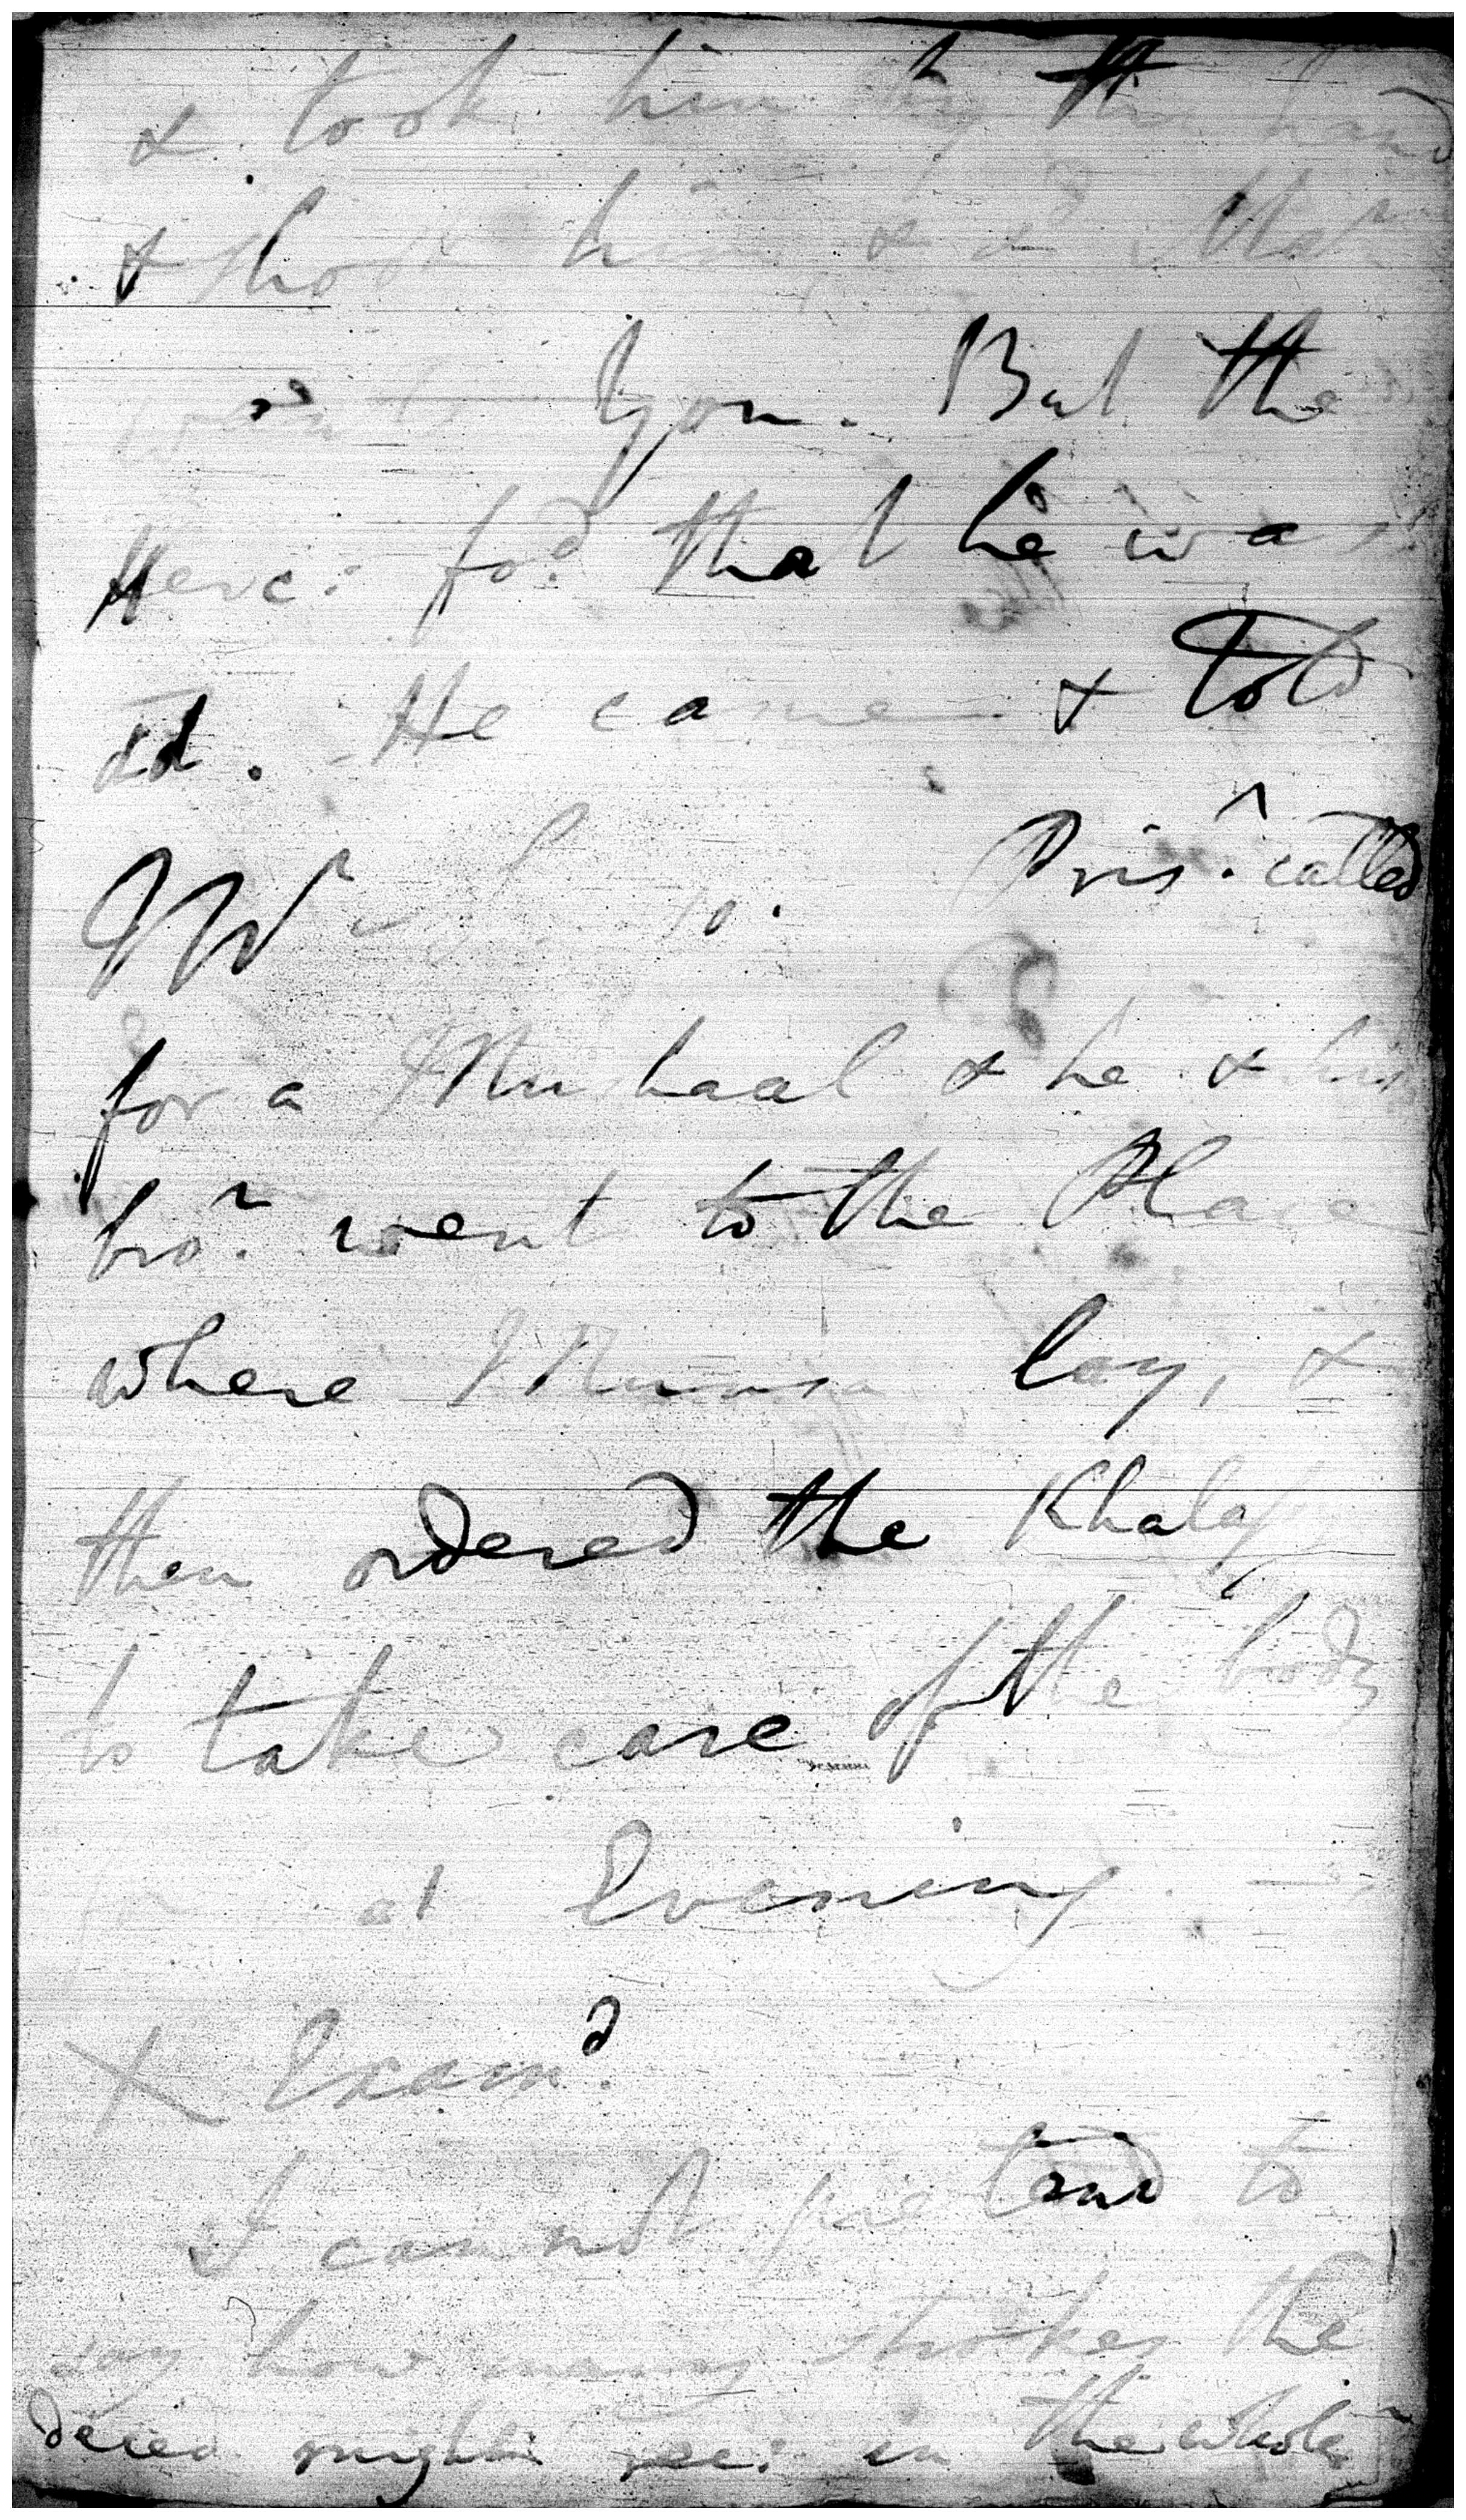 & took him by the hand
& shook him, & sd. What
You. But the
Herc: fod. that he was
dd. He came & told
Mr so. Prisr. called
for a Mushaal & he & his
bror. went to the Place
where Munsa lay, &
then ordered the Khalas
to take care of the body
at Evening.
X Examd.
I cannot pretend to
say how many strokes the
deced. might rec: in the whole